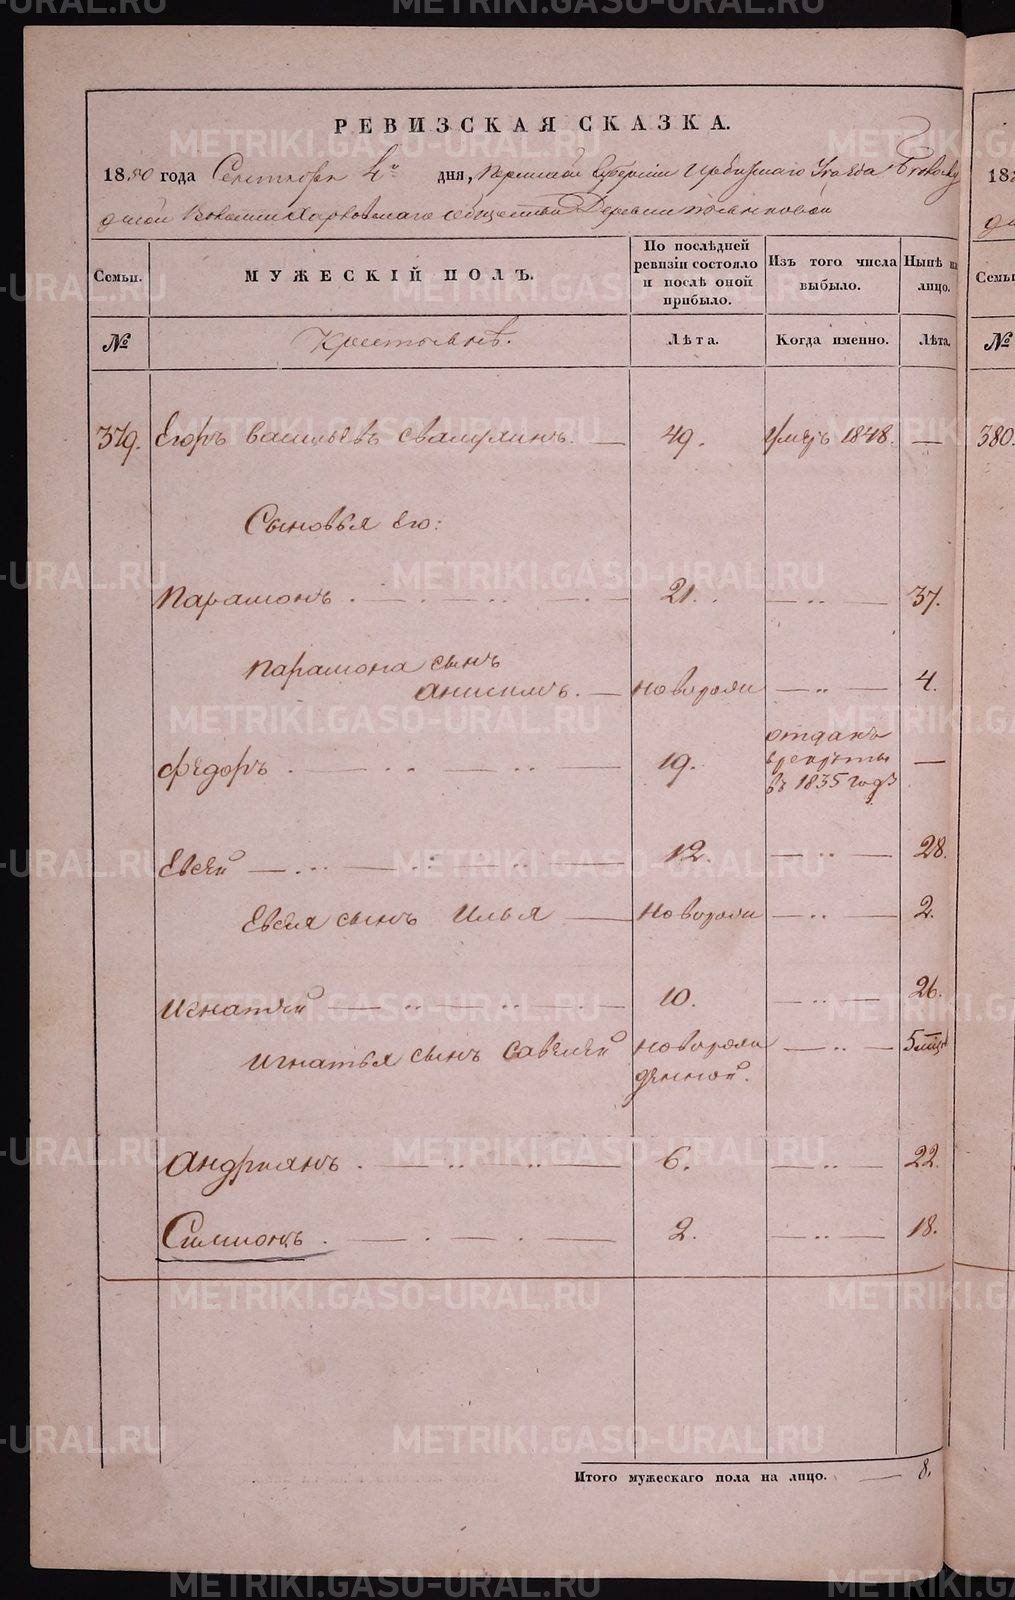 РЕВИЗСКАЯ СКАЗКА.
1850 года Сентября 4го дня, Пермской Губернии Ирбитского Уѣзда
дской Волости Харловскаго общества Деревни
Семьи. МУЖЕСКІЙ ПОЛЪ. По послѣдней ревизіи состояло и послѣ оной прибыло. Изъ того числа выбыло. Нынѣ на лицо.
№ Крестьянъ. Лѣта. Когда именно. Лѣта.
379. Егоръ Васильевъ Свалухинъ. — 49. Умеръ 1848. —
Сыновья его:
Парамонъ 21. — 37.
Парамона сынъ
Анисимъ. — новорож — 4.
Федоръ 19. отданъ в рекруты въ 1835 годѣ —
Евсей 12. — 28.
Евсея сынъ Илья — новорож — 2.
Игнатей 10. — 26.
Игнатья сынъ Савелей новорож — 5 мѣс
денной.
Андриянъ 6. — 22.
Симионъ 2. — 18.
Итого мужескаго пола на лицо. — 8.
380.
Семьи
№
METRIKI.GASO-URAL.RU